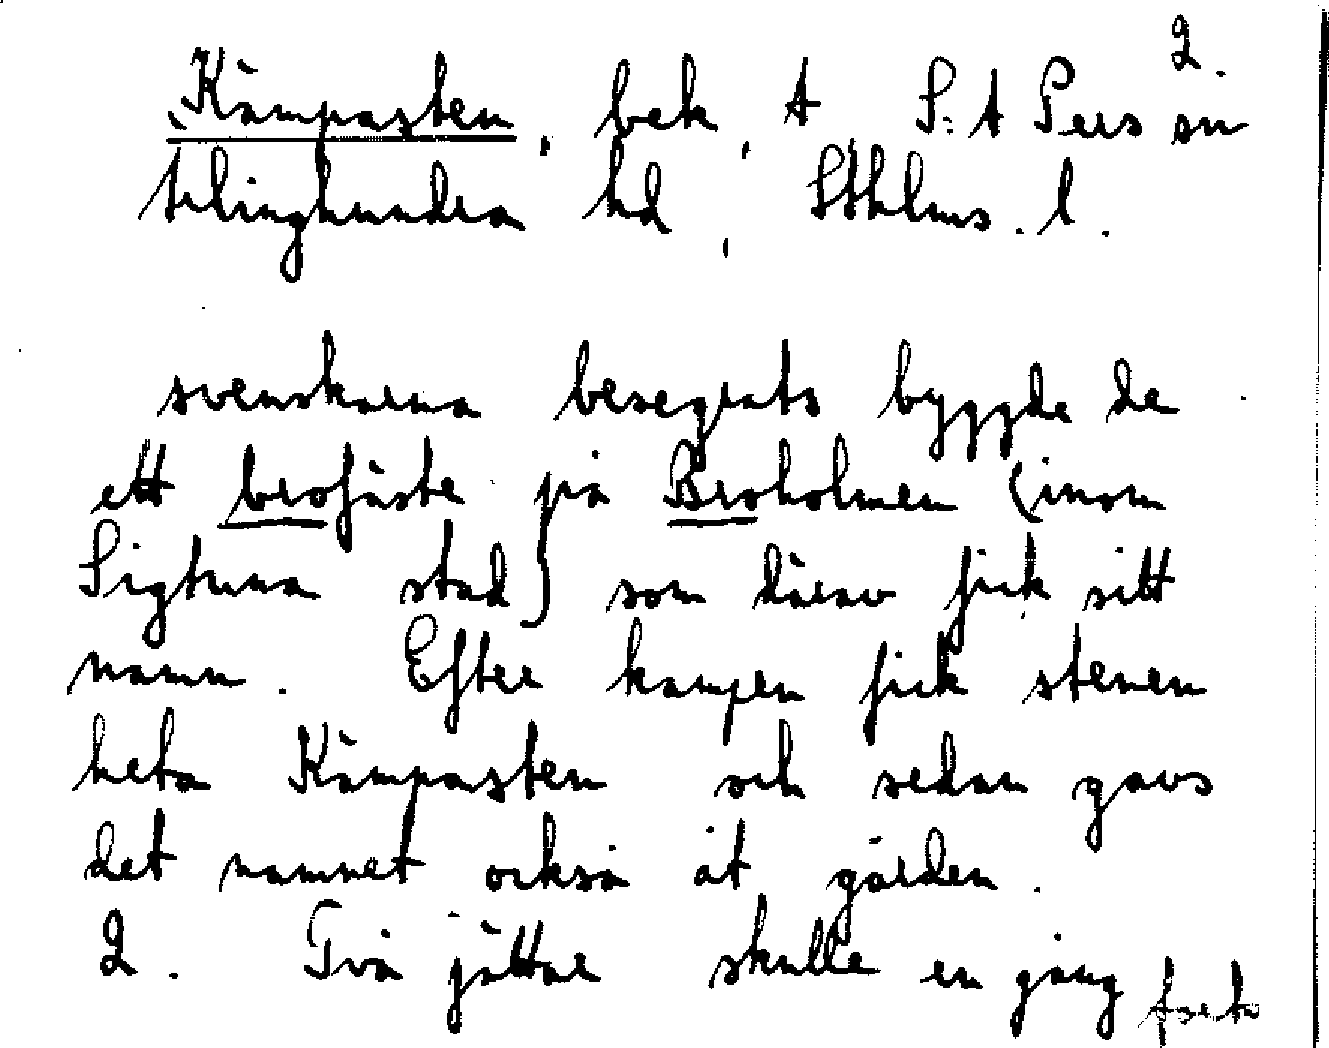 2.
Kämpasten, bek, A S:t Pers sn
Ärlinghundra hd, Sthlms. l.
svenskarna besegrats byggde de
ett brofäste på Broholmen (inom
Sigtuna stad) som därav fick sitt
namn. Efter kampen fick stenen
heta Kämpasten och sedan gavs
det namnet också åt gården.
2. Två jättar skulle en gång